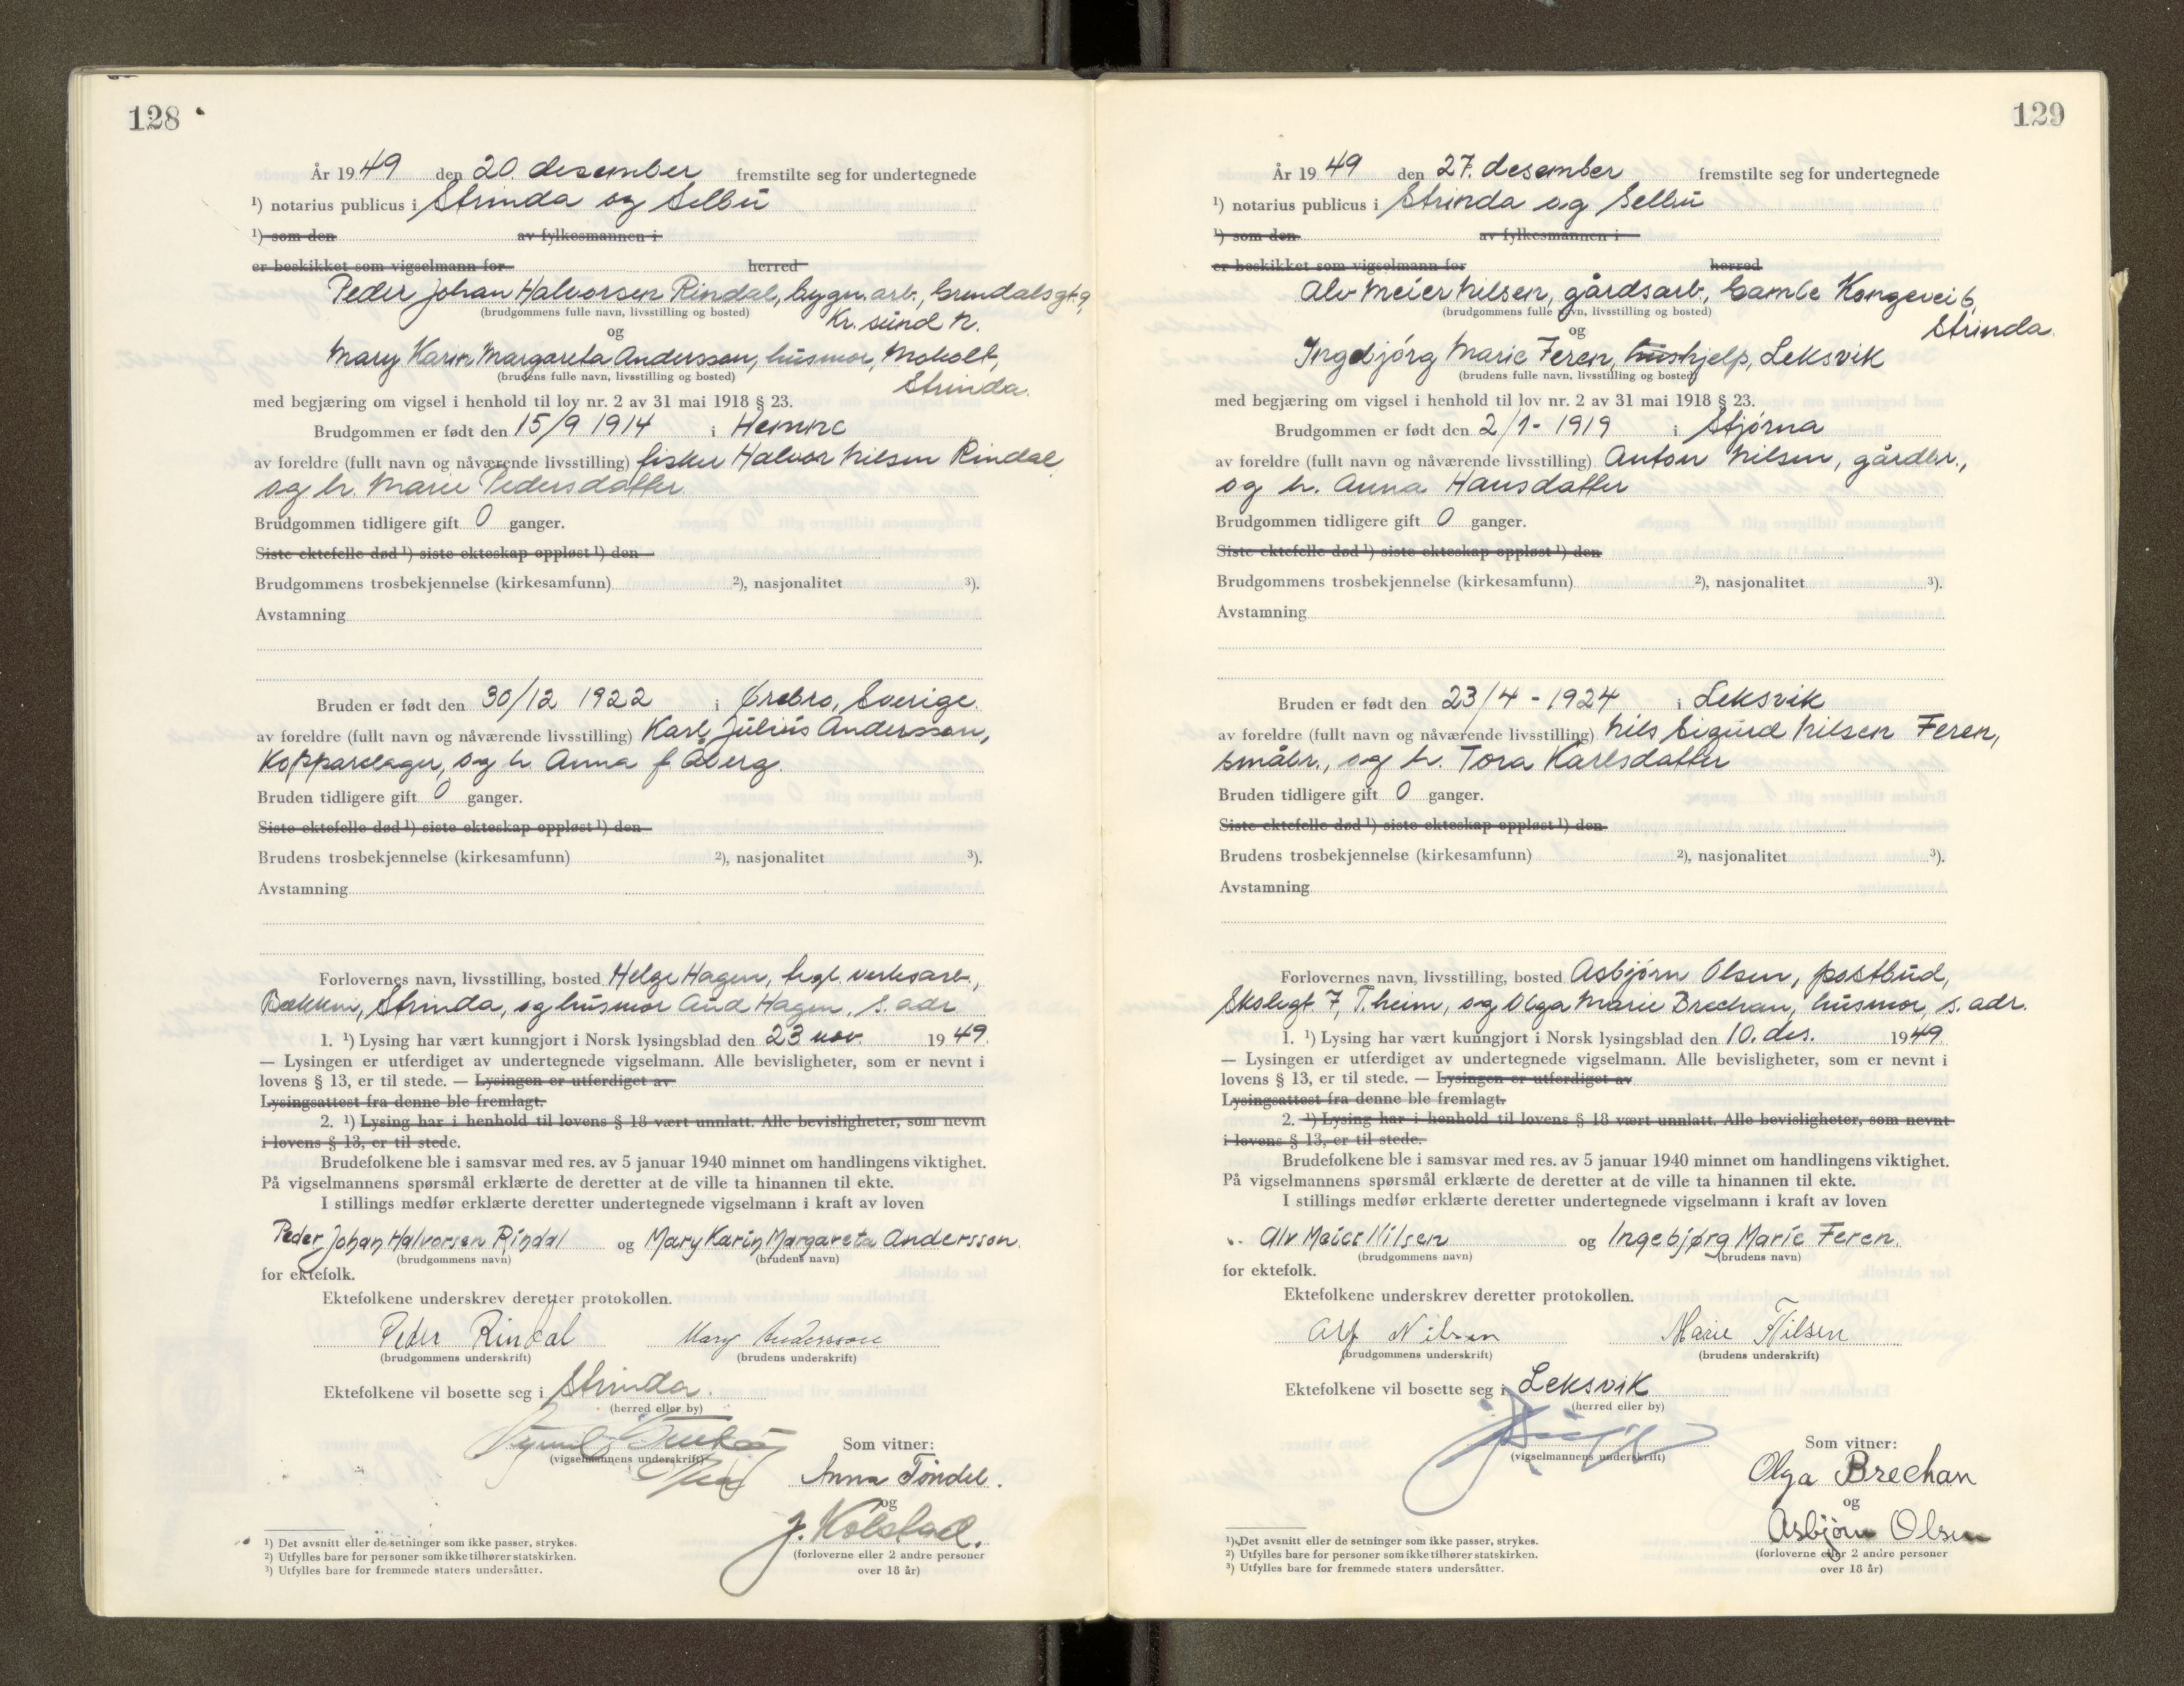 128
År 1949 den 20. desember fremstilte seg for undertegnede
¹) notarius publicus i Strinda og Selbu
¹) som den av fylkesmannen i
er beskikket som vigselmann for herred
Peder Johan Halvorsen Rindal, bygn.arb., Grundalsgt. 9,
(brudgommens fulle navn, livsstilling og bosted)
Kr. sund N.
og
Mary Karin Margareta Andersson, husmor, Moholt,
(brudens fulle navn, livsstilling og bosted)
Strinda.
med begjæring om vigsel i henhold til lov nr. 2 av 31 mai 1918 § 23.
Brudgommen er født den 15/9 1914 i Hemne
av foreldre (fullt navn og nåværende livsstilling) fisker Halvor Nilsen Rindal
og h. Marie Pedersdatter
Brudgommen tidligere gift 0 ganger.
Siste ektefelle død ¹) siste ekteskap oppløst ¹) den
Brudgommens trosbekjennelse (kirkesamfunn) ²), nasjonalitet ³).
Avstamning
Bruden er født den 30/12 1922 i Örebro, Sverige
av foreldre (fullt navn og nåværende livsstilling) Karl Julius Andersson,
Kopparslager, og h. Anna f Åberg.
Bruden tidligere gift 0 ganger.
Siste ektefelle død ¹) siste ekteskap oppløst ¹) den
Brudens trosbekjennelse (kirkesamfunn) ²), nasjonalitet ³).
Avstamning
Forlovernes navn, livsstilling, bosted Helge Hagen, tegl.verksarb.,
Bakken, Strinda, og husmor Aud Hagen, s. adr
1. ¹) Lysing har vært kunngjort i Norsk lysingsblad den 23 nov 1949.
— Lysingen er utferdiget av undertegnede vigselmann. Alle bevisligheter, som er nevnt i
lovens § 13, er til stede. — Lysingen er utferdiget av
Lysingsattest fra denne ble fremlagt.
2. ¹) Lysing har i henhold til lovens § 18 vært unnlatt. Alle bevisligheter, som nevnt
i lovens § 13, er til stede.
Brudefolkene ble i samsvar med res. av 5 januar 1940 minnet om handlingens viktighet.
På vigselmannens spørsmål erklærte de deretter at de ville ta hinannen til ekte.
I stillings medfør erklærte deretter undertegnede vigselmann i kraft av loven
Peder Johan Halvorsen Rindal og Mary Karin Margareta Andersson.
(brudgommens navn) (brudens navn)
for ektefolk.
Ektefolkene underskrev deretter protokollen.
Peder Rindal Mary Andersson
(brudgommens underskrift) (brudens underskrift)
Ektefolkene vil bosette seg i Strinda.
(herred eller by)
Som vitner:
(vigselmannens underskrift)
Anna Töndel.
og
J. Kolstad.
(forloverne eller 2 andre personer
over 18 år)
¹) Det avsnitt eller de setninger som ikke passer, strykes.
²) Utfylles bare for personer som ikke tilhører statskirken.
³) Utfylles bare for fremmede staters undersåtter.
129
År 1949 den 27. desember fremstilte seg for undertegnede
¹) notarius publicus i Strinda og Selbu
¹) som den av fylkesmannen i
er beskikket som vigselmann for herred
Alv Meier Nilsen, gårdsarb., Gamle Kongevei 6,
(brudgommens fulle navn, livsstilling og bosted)
Strinda.
og
Ingebjørg Marie Feren, hushjelp, Leksvik
(brudens fulle navn, livsstilling og bosted)
med begjæring om vigsel i henhold til lov nr. 2 av 31 mai 1918 § 23.
Brudgommen er født den 2/1- 1919 i Stjørna
av foreldre (fullt navn og nåværende livsstilling) Anton Nilsen, gårdbr.,
og h. Anna Hansdatter
Brudgommen tidligere gift 0 ganger.
Siste ektefelle død ¹) siste ekteskap oppløst ¹) den
Brudgommens trosbekjennelse (kirkesamfunn) ²), nasjonalitet ³).
Avstamning
Bruden er født den 23/4 - 1924 i Leksvik
av foreldre (fullt navn og nåværende livsstilling) Nils Sigurd Nilsen Feren,
småbr., og h. Tora Karlsdatter
Bruden tidligere gift 0 ganger.
Siste ektefelle død ¹) siste ekteskap oppløst ¹) den
Brudens trosbekjennelse (kirkesamfunn) ²), nasjonalitet ³).
Avstamning
Forlovernes navn, livsstilling, bosted Asbjørn Olsen, postbud,
7, T.heim, og Olga Marie Brechan, husmor, s. adr.
1. ¹) Lysing har vært kunngjort i Norsk lysingsblad den 10. des. 1949.
— Lysingen er utferdiget av undertegnede vigselmann. Alle bevisligheter, som er nevnt i
lovens § 13, er til stede. — Lysingen er utferdiget av
Lysingsattest fra denne ble fremlagt.
2. ¹) Lysing har i henhold til lovens § 18 vært unnlatt. Alle bevisligheter, som nevnt
i lovens § 13, er til stede.
Brudefolkene ble i samsvar med res. av 5 januar 1940 minnet om handlingens viktighet.
På vigselmannens spørsmål erklærte de deretter at de ville ta hinannen til ekte.
I stillings medfør erklærte deretter undertegnede vigselmann i kraft av loven
Alv Meier Nilsen og Ingebjørg Marie Feren.
(brudgommens navn) (brudens navn)
for ektefolk.
Ektefolkene underskrev deretter protokollen.
Alf Nilsen Marie F Nilsen
(brudgommens underskrift) (brudens underskrift)
Ektefolkene vil bosette seg i Leksvik
(herred eller by)
Som vitner:
(vigselmannens underskrift)
Olga Brechan
og
Asbjørn Olsen
(forloverne eller 2 andre personer
over 18 år)
¹) Det avsnitt eller de setninger som ikke passer, strykes.
²) Utfylles bare for personer som ikke tilhører statskirken.
³) Utfylles bare for fremmede staters undersåtter.